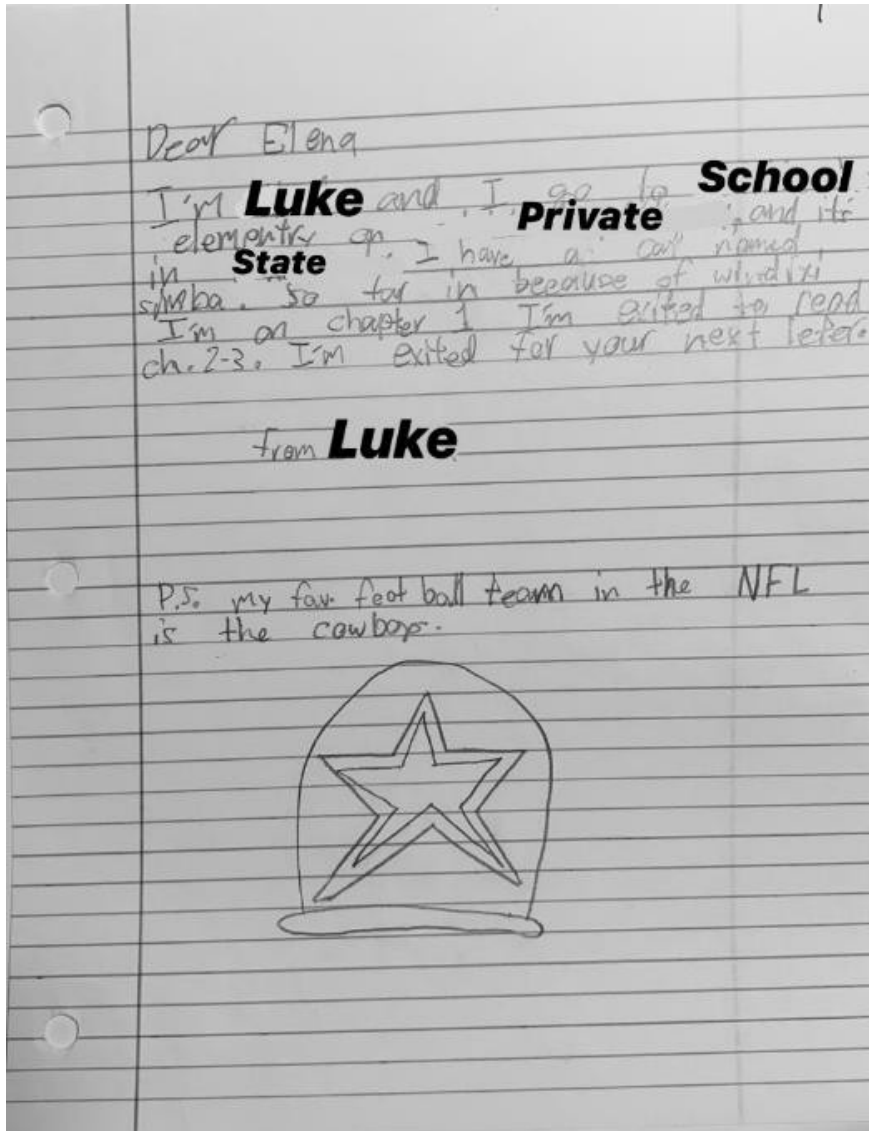 Dear Elena
I'm Luke and I go to School
elementry Private , and it's
in State I have a cat named
simba. So far in beecause of windixi
I'm on chapter 1 I'm exited to read
ch. 2-3. I'm exited for your next leter.
from Luke
P.S. my fav. foot ball team in the NFL
is the cowboys.